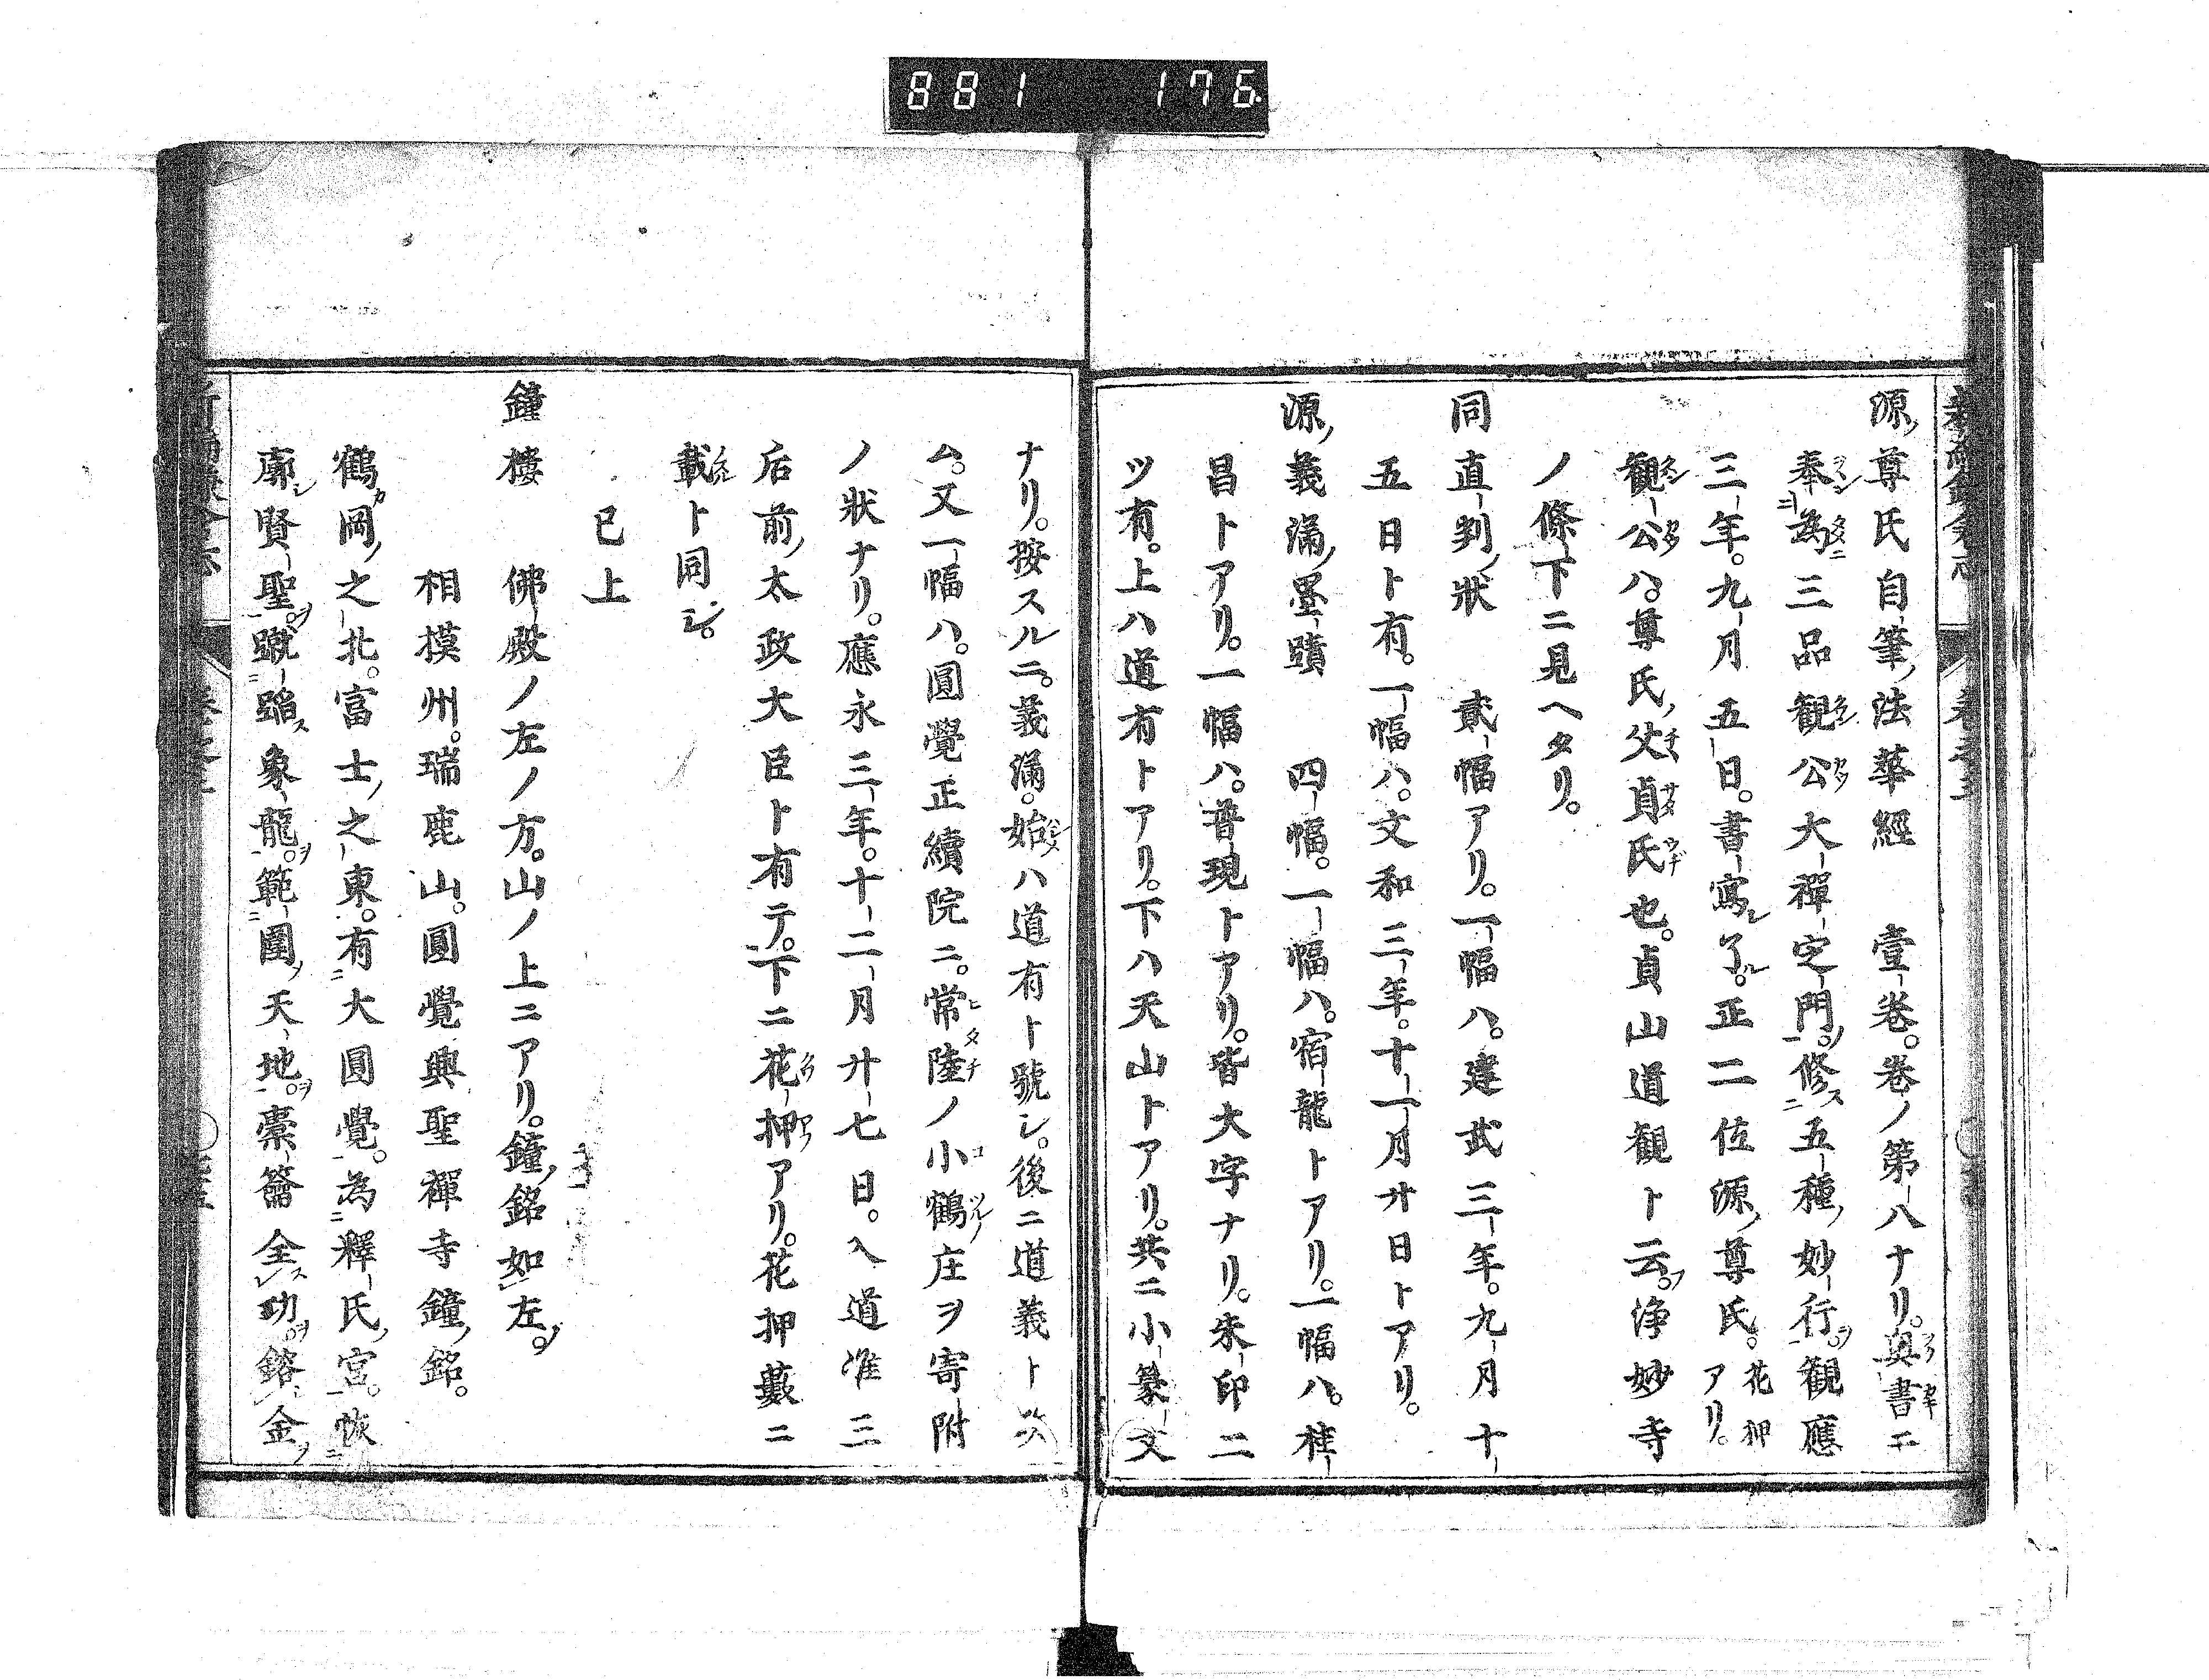 881 176
源尊氏自筆法華經 壹卷。卷ノ第八ナリ。奧書ニ
奉為三品観公大禪定門。修五種妙行。観應
三年。九月五日。書寫了。正二位源尊氏。花押アリ。
観公ハ。尊氏父貞氏也。貞山道観ト云。浄妙寺
ノ條下ニ見ヘタリ。
同直判狀 貳幅アリ。一幅ハ。建武三年。九月十
五日ト有。一幅ハ。文和三年。十一月廿日トアリ。
源義滿墨蹟 四幅。一幅ハ。宿龍トアリ。一幅ハ。桂
昌トアリ。一幅ハ。普現トアリ。皆大字ナリ。朱印二
ツ有。上ハ道有トアリ。下ハ天山トアリ。共ニ小篆文
ナリ。按スルニ。義滿。始ハ道有ト號シ。後ニ道義ト改
ム。又一幅ハ。圓覺正續院ニ。常陸ノ小鶴庄ヲ寄附
ノ狀ナリ。應永三年。十二月廿七日。入道准三
后前太政大臣ト有テ。下ニ花押アリ。花押藪ニ
載ト同シ。
已上
鐘樓 佛殿ノ左ノ方。山ノ上ニアリ。鐘銘如左。
相摸州。瑞鹿山。圓覺興聖禪寺鐘銘。
鶴岡之北。富士之東。有大圓覺。為釋氏宮。恢
廓賢聖。蹴蹈象龍。範圍天地。橐籥全功。鎔金
新編鎌倉志